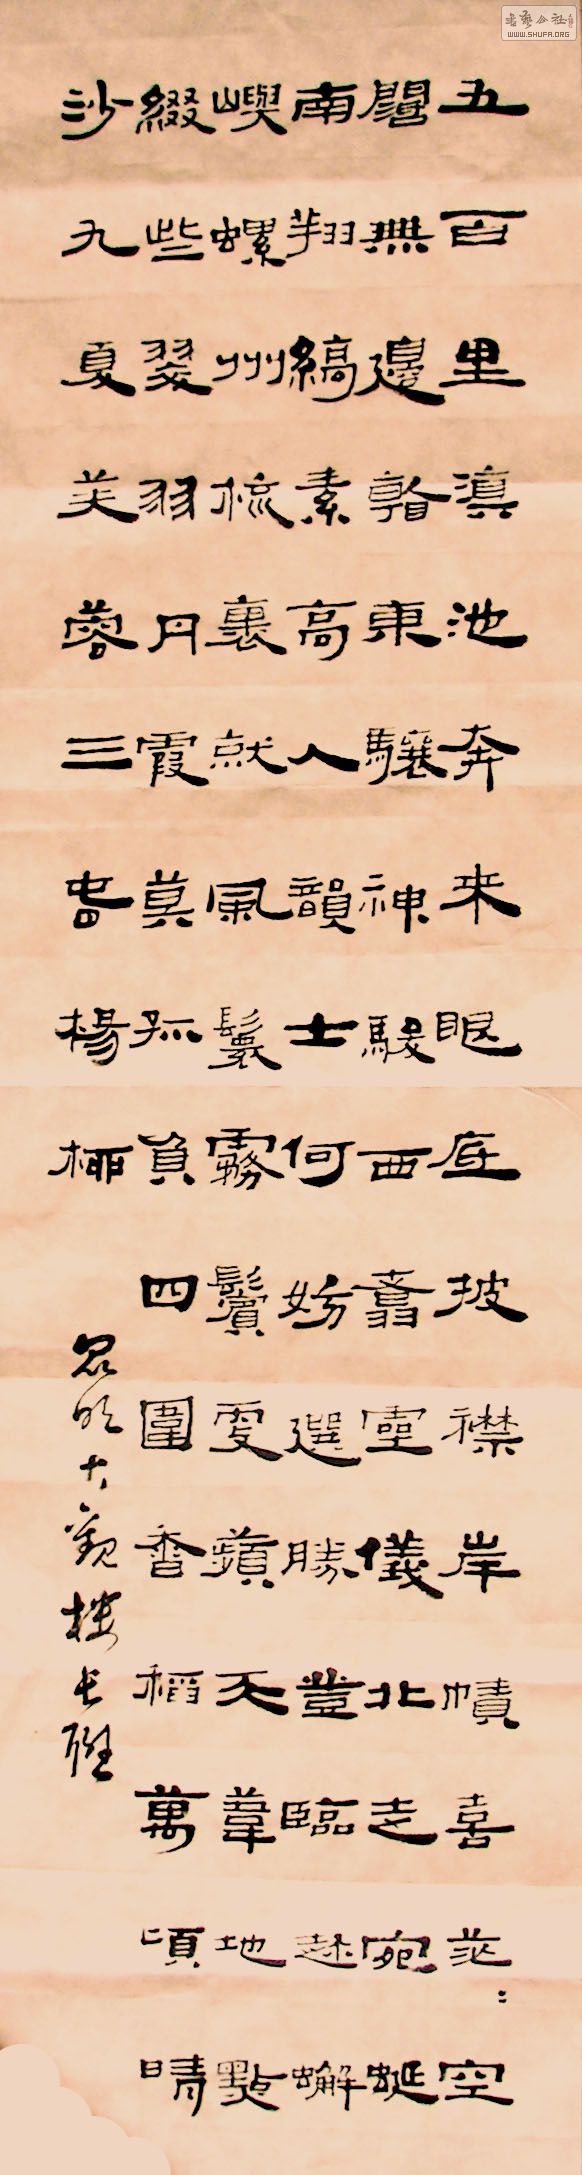 五百里滇池奔來眼底披襟岸幘喜茫:空
闊無邊看東驤神駿西翥靈儀北走宛蜒
南翔縞素高人韻士何妨選勝登臨趁蠏
嶼螺州梳裹就風鬟霧鬢更蘋天葦地點
綴些翠羽丹霞莫孤負四圍香稻萬頃晴
沙九夏芙蓉三春楊柳
昆明大觀樓長聯
書藝公社
WWW.SHUFA.ORG